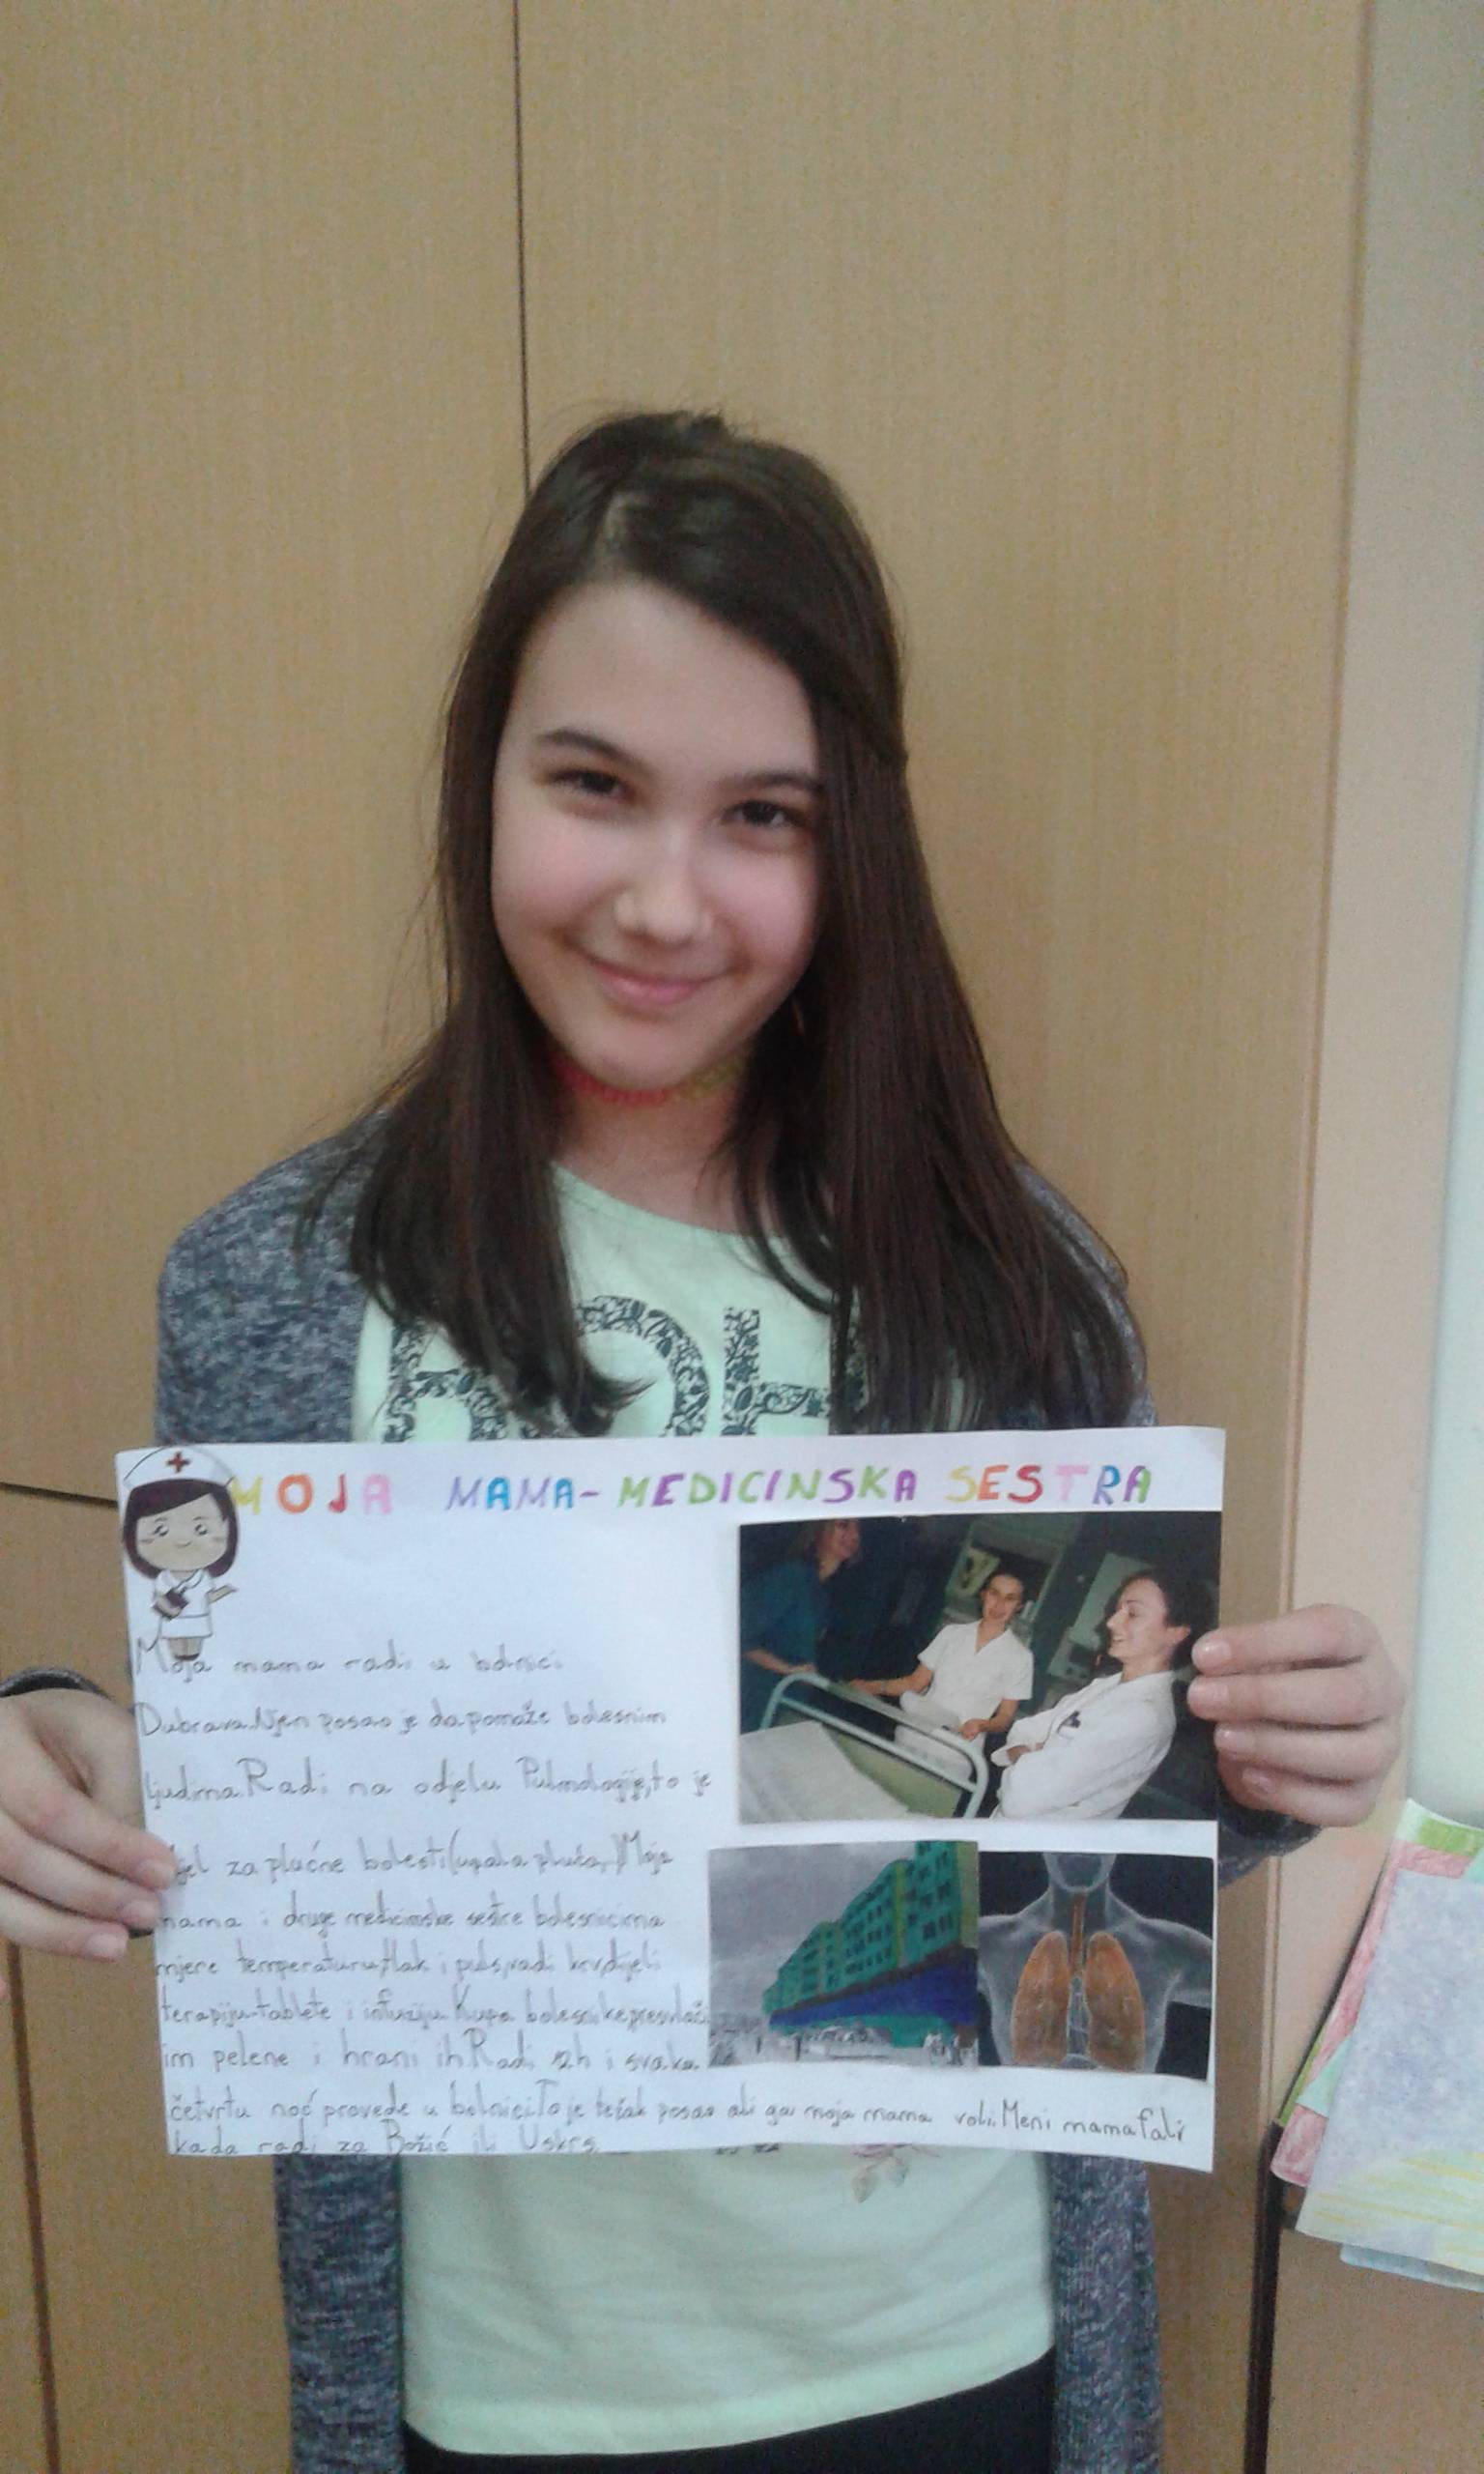 MOJA MAMA-MEDICINSKA SESTRA
Moja mama radi u bolnici
Dubrava.Njen posao je da pomaže bolesnim
ljudima.Radi na odjelu Pulmologije,to je
za plućne bolesti(upala pluća,)Moja
mama i druge medicinske sestre bolesnicima
mjere temperaturu,tlak i puls,vadi krv,dijeli
terapiju-tablete i infuziju.Kupa bolesnike,presvlači
im pelene i hrani ih.Radi 12h i svaku
četvrtu noć provede u bolnici.To je težak posao ali ga moja mama voli.Meni mama fali
kada radi za Božić ili Uskrs.